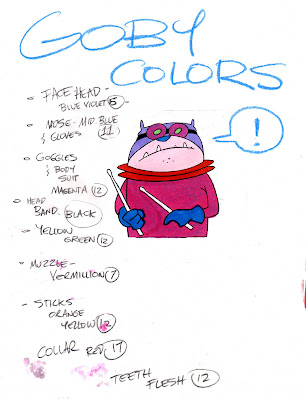 GOBY
COLORS
- FACE HEAD -
BLUE VIOLET 5 -
- NOSE - MID. BLUE
& GLOVES 11
- GOGGLES
& BODY
SUIT
MAGENTA 12
- HEAD
BAND - BLACK
- YELLOW
GREEN 12
- MUZZLE -
VERMILLION 7
- STICKS
ORANGE
YELLOW 12
COLLAR RED 17
TEETH
FLESH 12
!